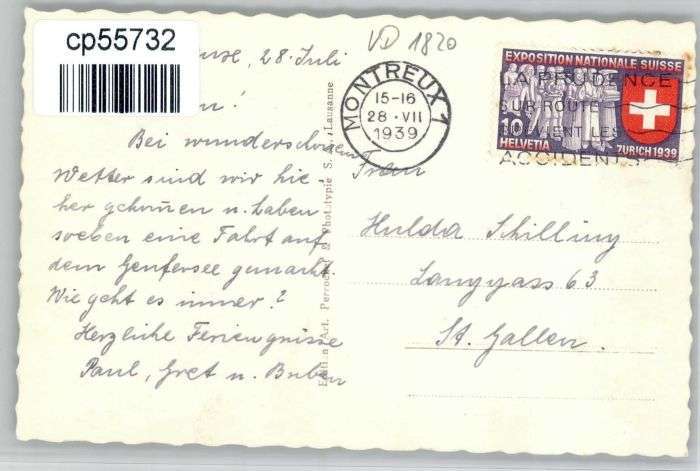 cp55732
VD 1820
28. Juli
Bei wunderschönem
Wetter sind wir hie-
her gekommen u. haben
soeben eine Fahrt auf
dem Genfersee gemacht.
Wie geht es immer?
Herzliche Feriengrüsse
Paul, Gret u. Buben
Edition Art. Perrochet Phototypie S. Lausanne
MONTREUX 1
15-16
28.VII
1939
EXPOSITION NATIONALE SUISSE
10
HELVETIA
ZURICH 1939
LA PRUDENCE
SUR ROUTE
LES
ACCIDENTS
Frau
Hulda Schilling
Langgass 63
St. Gallen.